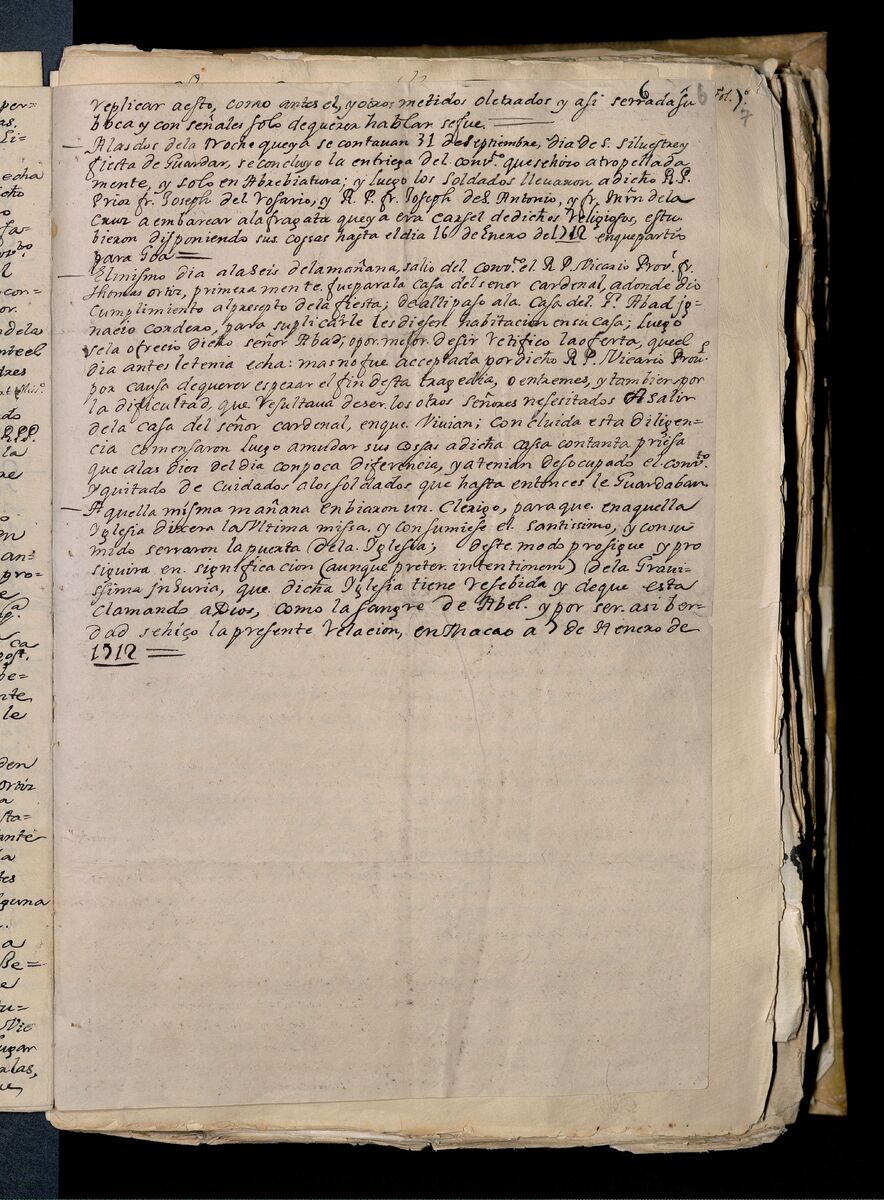 6 Fol. 7.
7
replicar aesto, como antes el, y otros metidos oletrados y asi serrada su
boca y con señales solo dequerer hablar sefue.
— Alasdos dela noche queya se contavan 31 deseptiembre, dia de S. siluestre y
fiesta de Guardar, seconcluyo la entriega del conv.to quesehizo atropellada
mente, y solo en Abrebiatura; y luego los soldados lleuaron adicho R. P.
Prior fr. Joseph del Rosario, y R. P. fr. Joseph de S. Antonio, y fr. Jnrn dela
Cruz a embarcar alafragata queya era carsel dedichos religiosos, estu
bieron disponiendo sus cossas hasta eldia 16 de Enero de 1712 enquepartio
para Goa
— Elmismo dia alaseis delamañana, salio del conv.to el R P. Vicario Prov.l fr.
Thomas ortiz, primera mente. fueparala casa del señor cardenal, adonde dio
Cumplimiento alpresepto dela fiesta; de alli paso ala Casa del P.e Abad jg-
nacio cordero, para suplicarle lesdiesen habitacion ensu casa; luego
sela ofrecio dicho señor Abad; opor mejor desir retifico laoferta, quel
dia antes letenia echa: mas no fue acceptada pordicho R P. Vicario Prov.l
por causa dequerer esperar el fin desta tragedia, o entremes, y tambien por
la dificultad, que resultava deser los otros señores nesesitados a salir
dela casa del señor cardenal, enque vivian; concluida esta diligen-
cia comensaron luego amudar sus cossas adicha cassa contanta priesa
que alas diez del dia conpoca diferencia, yatenian desocupado el conv.to
y quitado de cuidados alossoldados que hasta entonces le Guardaban
— Aquella misma mañana enbiaron un Clerigo, paraque enaquella
Yglesia dixera la ultima missa, y consumiese el santissimo, y consu
mido serraron la puerta dela Iglesia; deste modo prosigue y pro
siguira en significacion (aunque preter intentionem) dela Gravi-
ssima jnjuria, que dicha Yglesia tiene resebida y deque esta
Clamando a Dios, como la sangre de Abel. y por ser asi ber-
dad sehiço la presente relacion, en Macao a 7 de Henero de
1712